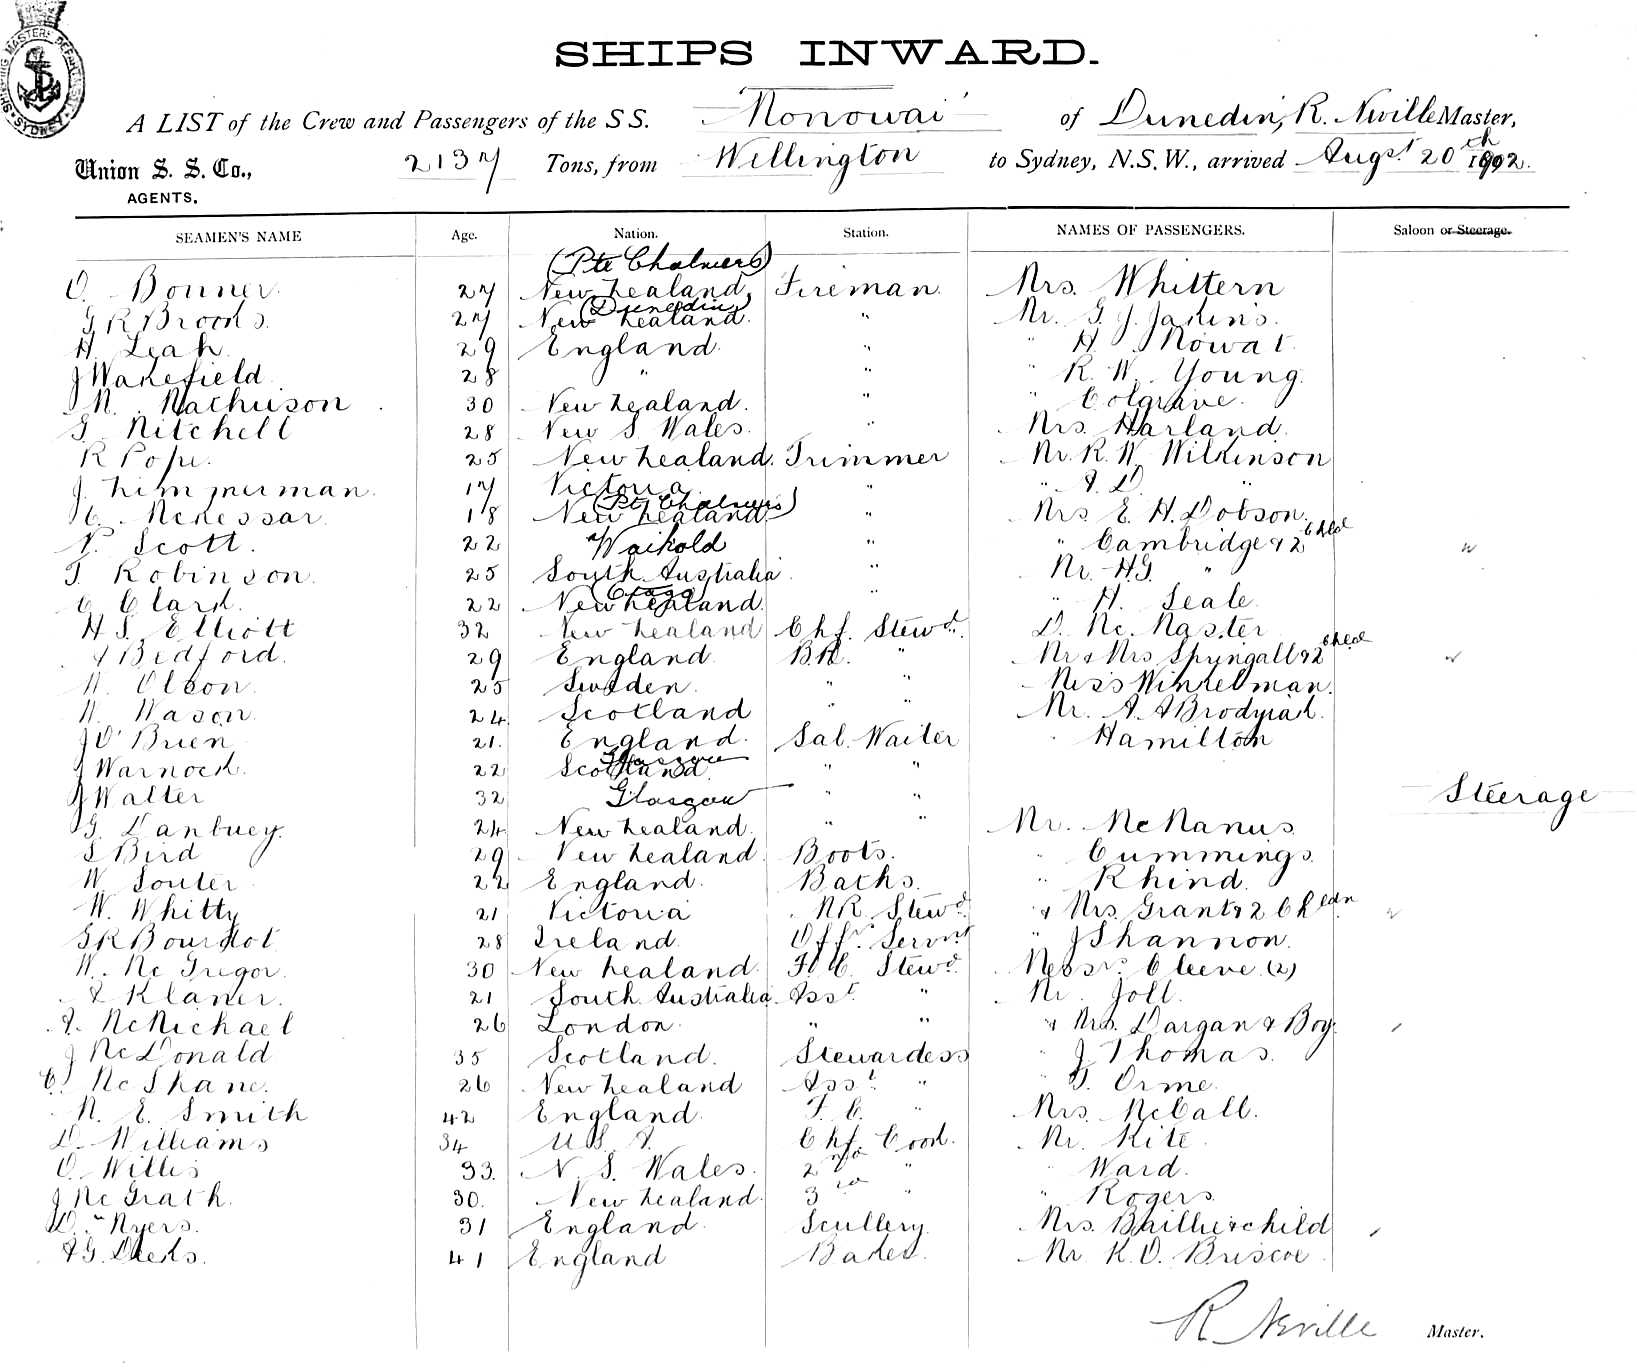 SHIPPING MASTERS DEPARTMENT SYDNEY
SHIPS INWARD.
A LIST of the Crew and Passengers of the SS. Monowai of Dunedin, R. Neville Master,
Union S. S. Co., AGENTS. 2137 Tons, from Wellington to Sydney, N.S.W., arrived Augst 20th 1892.
SEAMEN'S NAME Age. Nation. Station. NAMES OF PASSENGERS. Saloon or Steerage.
(Pte Chalmers)
O. Bonner. 27 New Zealand, Fireman. Mrs. Whittern
(Dunedin)
G R Brooks. 27 New Zealand. " Mr. G. J. Jakins.
H. Leah. 29 England. " " H. Mowat.
J Wakefield 28 " " " R. W. Young.
M. Mathieson 30 New Zealand. " " Colgrave.
G. Mitchell 28 New S Wales. " Mrs Harland.
R Pope. 25 New Zealand. Trimmer Mr. R. W. Wilkinson
J. Zimmerman. 17 Victoria " " A. D. "
(Pte Chalmers)
C. McKessar. 18 New Zealand. " Mrs E. H. Dobson.
N. Scott. 22 Waikold " " Cambridge & 2 Chld
T. Robinson. 25 South Australia. " Mr. H.G. "
Otago
C Clark. 22 New Zealand. " " H. Seale.
H S. Elliott 32 New Zealand Chf. Stewd. D. Mc. Master
J Bedford. 29 England. B.K. " Mr & Mrs Springall & 2 Chld
M. Olson. 25 Sweden. " " Miss Winkelman.
W. Mason. 24. Scotland " " Mr. A. A Brodziak.
J O'Brien 21. England. Sal. Waiter " Hamilton
Glasgow
J Warnock. 22 Scotland. " "
J Walter 32 Glasgow " " Steerage
G. Danbuey. 24 New Zealand. " " Mr. McManus
S Bird 29 New Zealand. Boots. " Cummings.
W Souter. 22 England. Baths. " Rhind.
W. Whitty 21 Victoria N.R. Stewd. " & Mrs Grant & 2 Chldn
G R Bourdot. 28 Ireland. Offrs Servnt " J Shannon.
W. McGregor. 30 New Zealand. F. C. Stewd. Messrs. Cleeve (2)
A Klaner. 21 South Australia. Asst. " Mr. Joll.
A. McMichael 26 London. " " " & Mrs. Dargan & Boy.
J McDonald 35 Scotland. Stewardess " J Thomas.
C. McShane. 26 New Zealand Asst. " " T. Orme.
M. E. Smith 42 England. F. C. " Mrs. McCall.
D. Williams 34 U.S.A. Chf. Cook. Mr. Kite.
O. Willis 33. N. S. Wales. 2nd " " Ward.
J McGrath. 30. New Zealand. 3rd " " Rogers.
D. Myers. 31 England. Scullery. Mrs. Baillie & child
A G. Deeks. 41 England Baker. Mr. K. O. Briscoe
R Neville Master.